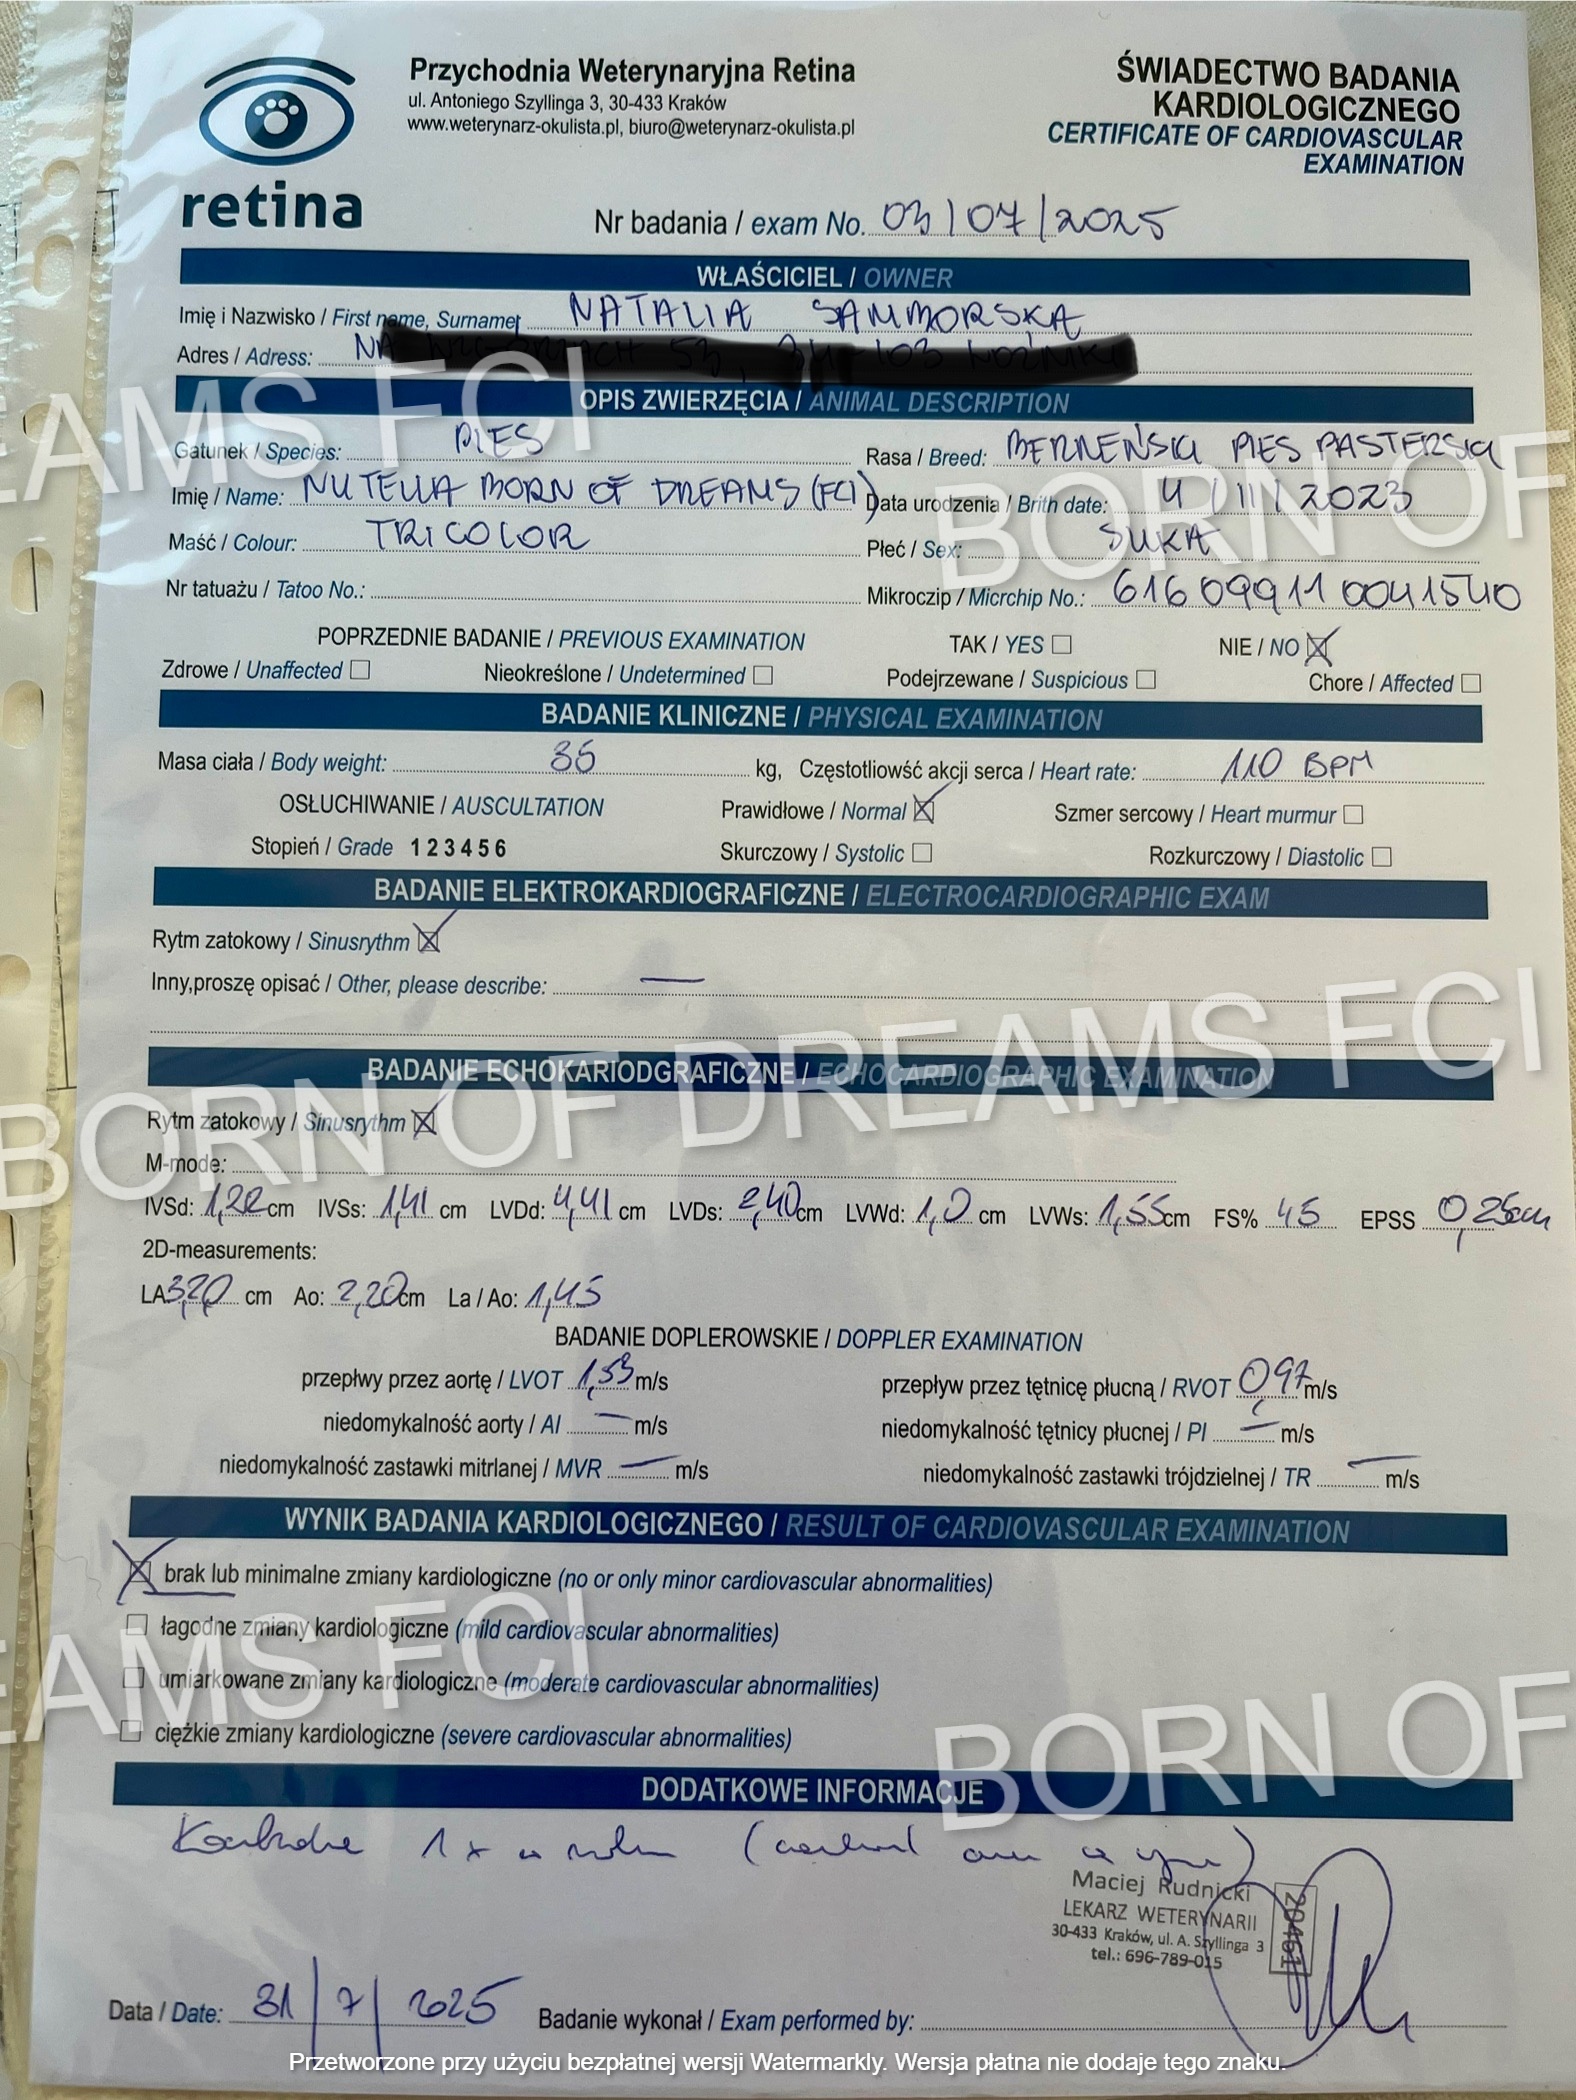 retina
Przychodnia Weterynaryjna Retina
ul. Antoniego Szyllinga 3, 30-433 Kraków
www.weterynarz-okulista.pl, biuro@weterynarz-okulista.pl
ŚWIADECTWO BADANIA
KARDIOLOGICZNEGO
CERTIFICATE OF CARDIOVASCULAR
EXAMINATION
Nr badania / exam No. 03/07/2025
WŁAŚCICIEL / OWNER
Imię i Nazwisko / First name, Surnamet NATALIA SAMBORSKA
Adres / Adress:
OPIS ZWIERZĘCIA / ANIMAL DESCRIPTION
Gatunek / Species: PIES Rasa / Breed: BERNEŃSKI PIES PASTERSKI
Imię / Name: NUTELLA BORN OF DREAMS (FCI) Data urodzenia / Brith date: 4/11/2023
Maść / Colour: TRICOLOR Płeć / Sex: SUKA
Nr tatuażu / Tatoo No.: Mikroczip / Micrchip No.: 616099110041540
POPRZEDNIE BADANIE / PREVIOUS EXAMINATION TAK / YES NIE / NO
Zdrowe / Unaffected Nieokreślone / Undetermined Podejrzewane / Suspicious Chore / Affected
BADANIE KLINICZNE / PHYSICAL EXAMINATION
Masa ciała / Body weight: 35 kg, Częstotliowść akcji serca / Heart rate: 110 BPM
OSŁUCHIWANIE / AUSCULTATION Prawidłowe / Normal Szmer sercowy / Heart murmur
Stopień / Grade 1 2 3 4 5 6 Skurczowy / Systolic Rozkurczowy / Diastolic
BADANIE ELEKTROKARDIOGRAFICZNE / ELECTROCARDIOGRAPHIC EXAM
Rytm zatokowy / Sinusrythm
Inny,proszę opisać / Other, please describe: —
BADANIE ECHOKARTIODGRAFICZNE / ECHOCARDIOGRAPHIC EXAMINATION
Rytm zatokowy / Sinusrythm
M-mode:
IVSd: 1,22 cm IVSs: 1,41 cm LVDd: 4,41 cm LVDs: 2,40 cm LVWd: 1,0 cm LVWs: 1,55 cm FS% 45 EPSS 0,25cm
2D-measurements:
LA 3,20 cm Ao: 2,20 cm La / Ao: 1,45
BADANIE DOPLEROWSKIE / DOPPLER EXAMINATION
przepłwy przez aortę / LVOT 1,53 m/s przepływ przez tętnicę płucną / RVOT 0,97 m/s
niedomykalność aorty / AI — m/s niedomykalność tętnicy płucnej / PI — m/s
niedomykalność zastawki mitrlanej / MVR — m/s niedomykalność zastawki trójdzielnej / TR — m/s
WYNIK BADANIA KARDIOLOGICZNEGO / RESULT OF CARDIOVASCULAR EXAMINATION
brak lub minimalne zmiany kardiologiczne (no or only minor cardiovascular abnormalities)
łagodne zmiany kardiologiczne (mild cardiovascular abnormalities)
umiarkowane zmiany kardiologiczne (moderate cardiovascular abnormalities)
ciężkie zmiany kardiologiczne (severe cardiovascular abnormalities)
DODATKOWE INFORMACJE
1x w roku
Maciej Rudnicki
LEKARZ WETERYNARII
30-433 Kraków, ul. A. Szyllinga 3
tel.: 696-789-015
20461
Data / Date: 31/7/2025 Badanie wykonał / Exam performed by:
EAMS FCI
BORN OF
BORN OF DREAMS FCI
EAMS FCI
BORN OF
Przetworzone przy użyciu bezpłatnej wersji Watermarkly. Wersja płatna nie dodaje tego znaku.